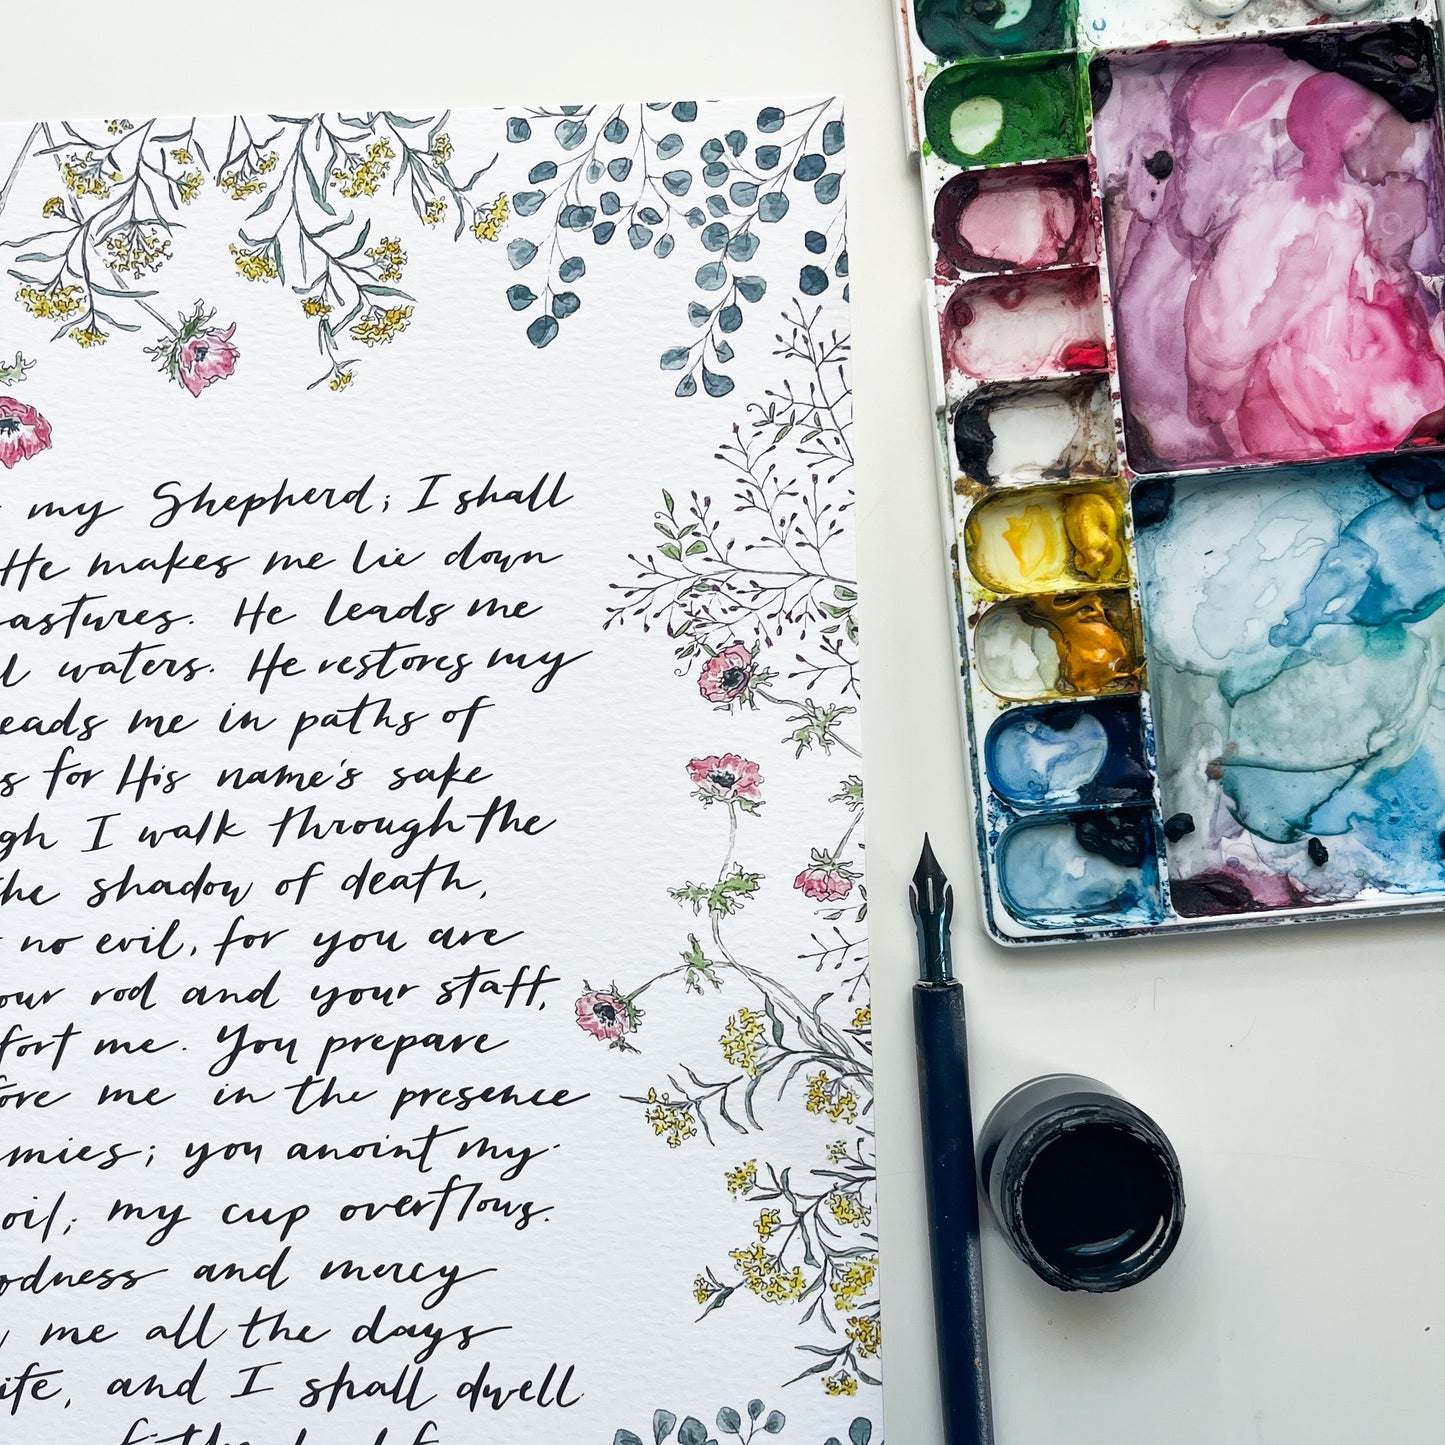 my Shepherd; I shall
He makes me lie down
astures. He leads me
l waters. He restores my
eads me in paths of
s for His name's sake
gh I walk through the
the shadow of death,
no evil, for you are
our rod and your staff,
fort me. You prepare
ore me in the presence
mies; you anoint my
oil; my cup overflows.
odness and mercy
me all the days
ife, and I shall dwell